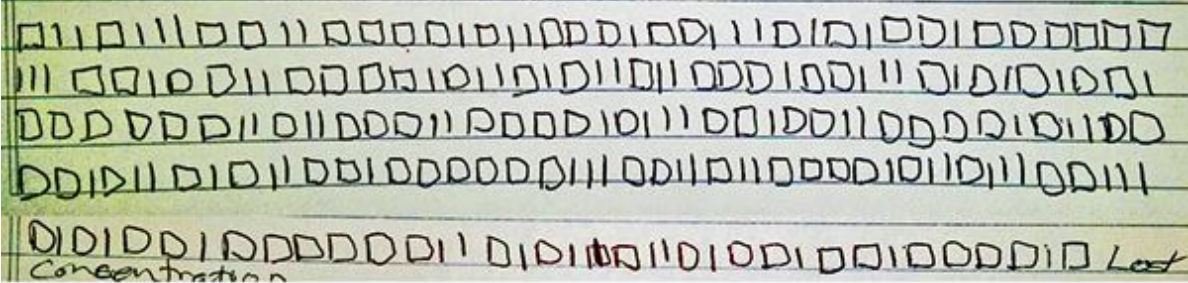 0110111001100001011000100111010100100000
111001001100001011010110110001001110101010 1
000000110110001100001011100100110000010110 0
00101101011001000000111001101100001011011100111
010100100000011010110110100100100001 0 Lost
Concentration